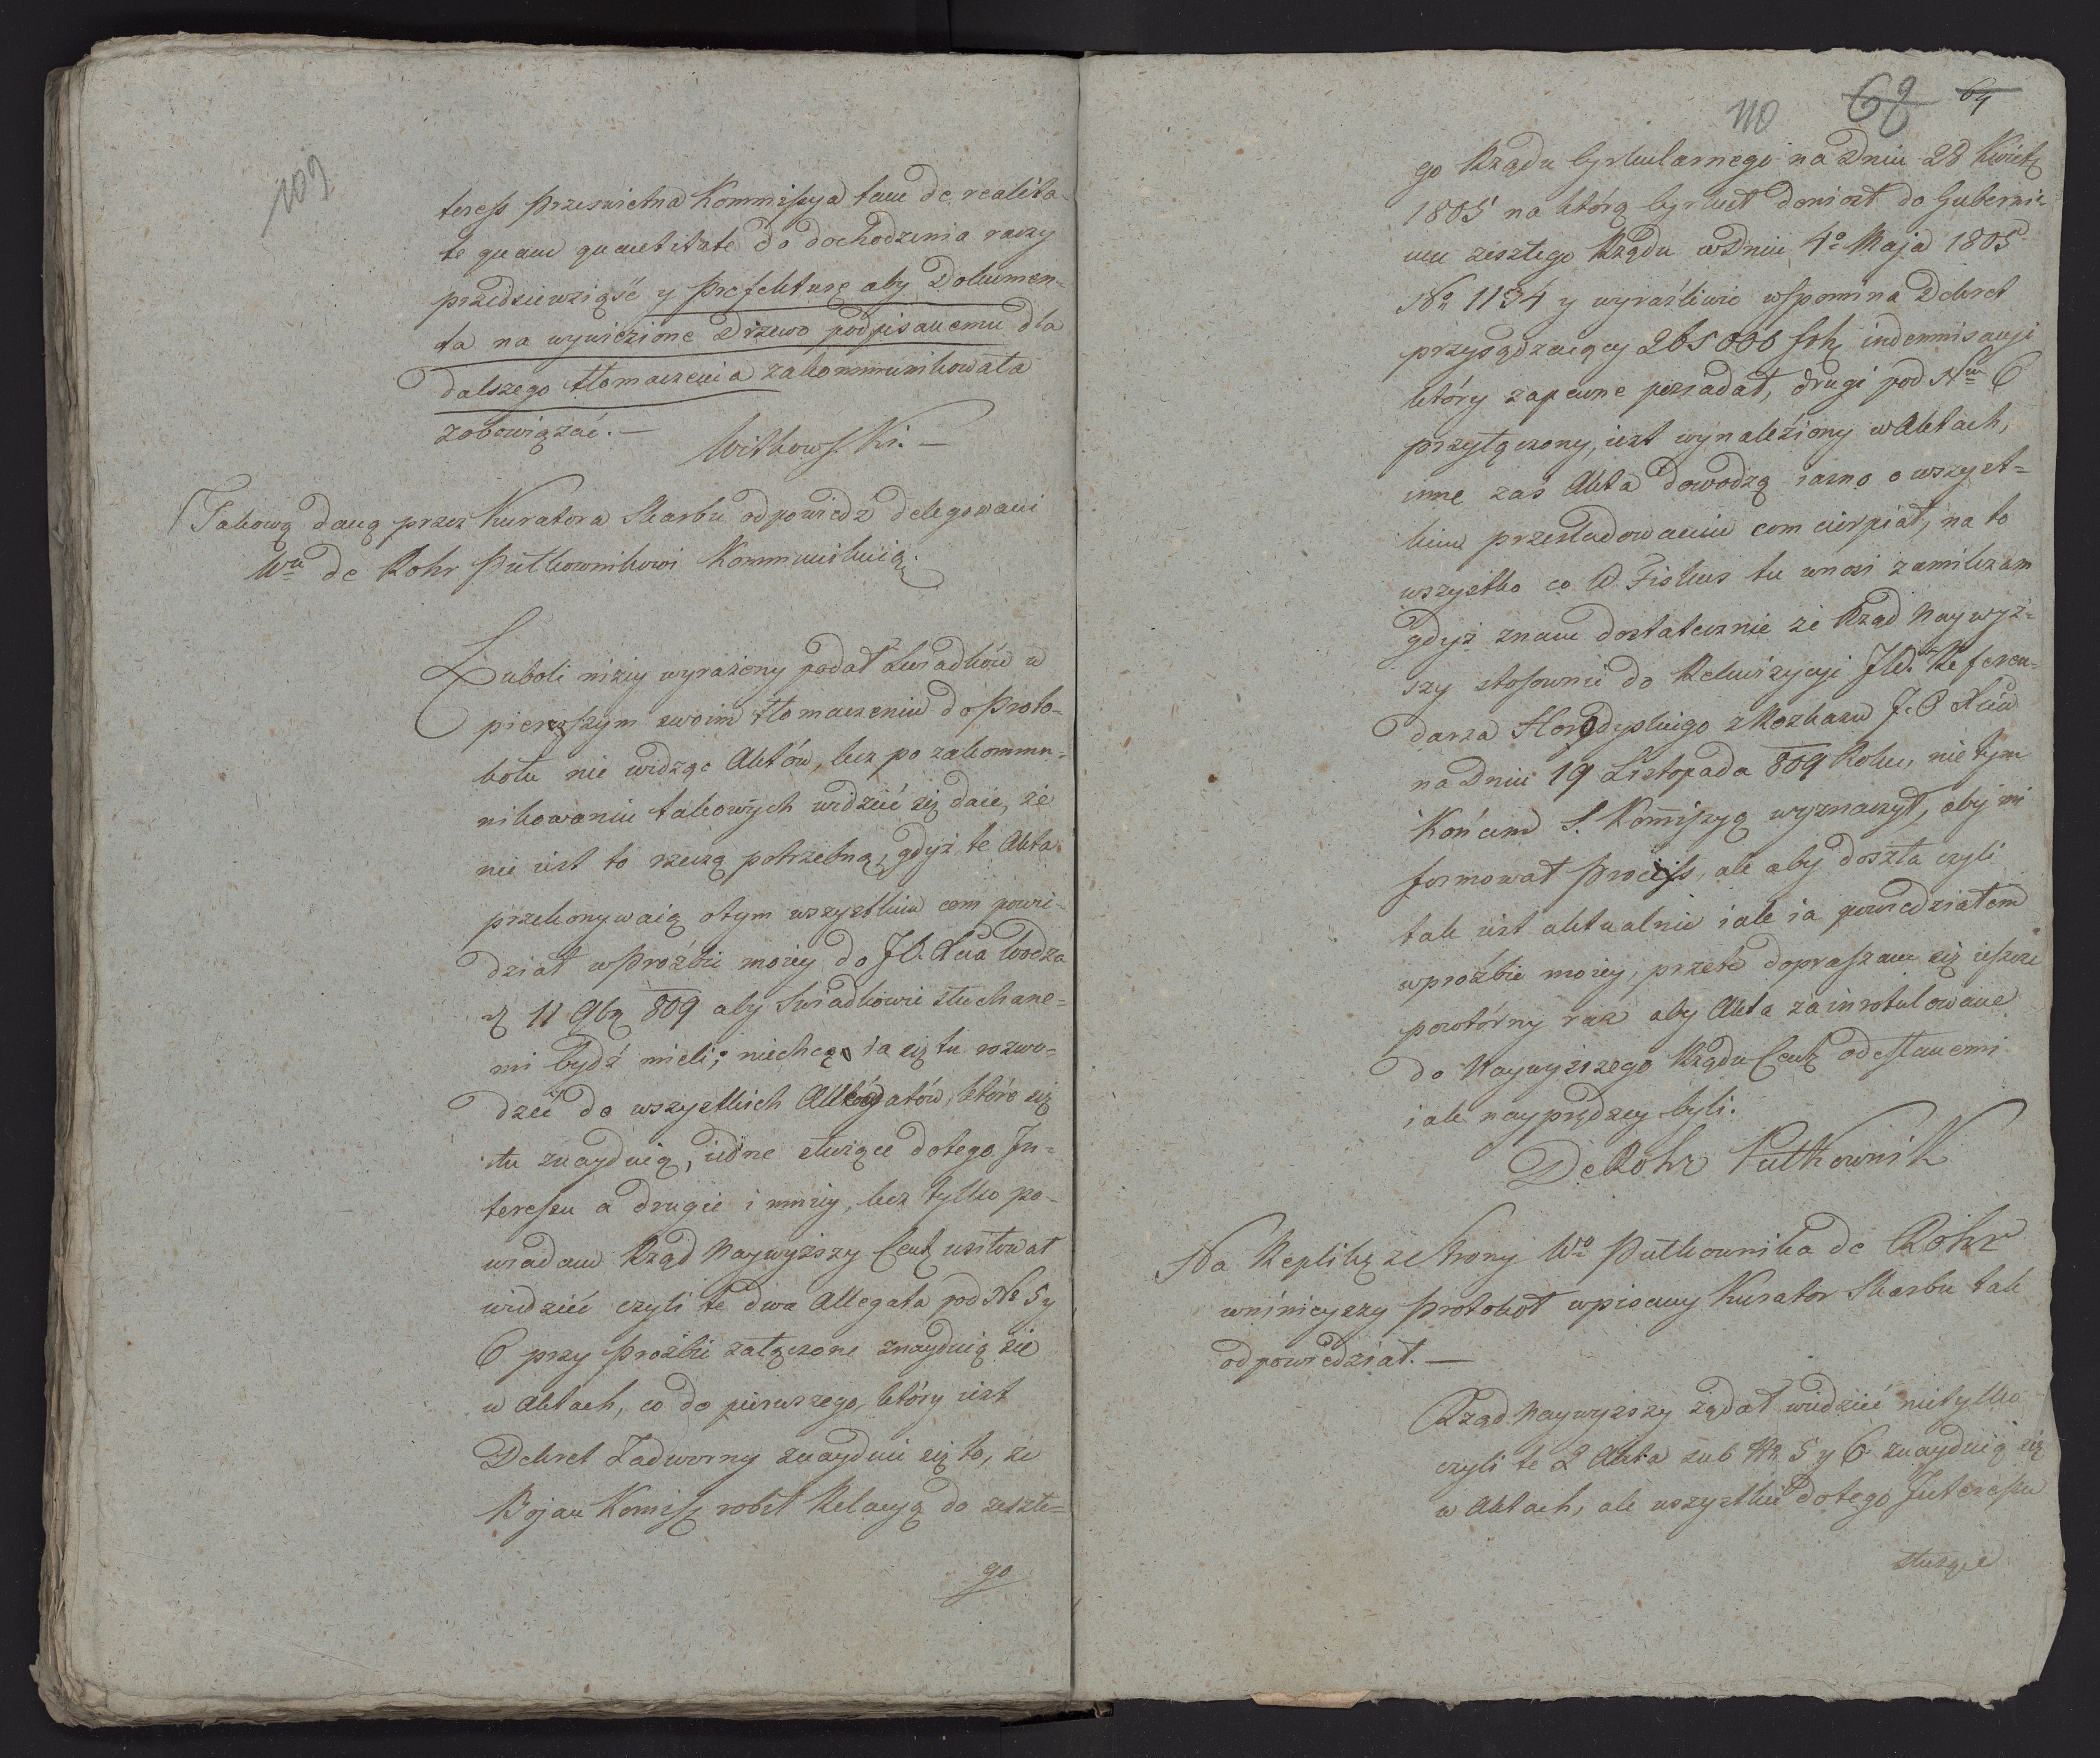 109
teress Prześwietna Kommissya tam de realita-
te quam quantitate do dochodzenia raczy
przedsiewziąść y Prefekturę aby Dokumen-
ta na wywiezione Drzewo podpisanemu dla
dalszego tłomaczenia zakommunikowała
zobowiązać. —
Witkowski. —
Takową daną przez Kuratora Skarbu odpowiedź delegowani
Wu de Rohr Pułkownikowi Kommunikuią.
Luboli niżey wyrażony podał Swiadków w
pierwszym swoim tłomaczeniu do Proto-
kołu nie widząc Aktów, lecz po zakommu-
nikowaniu takowych widzieć się daie, że
nie iest to rzeczą potrzebną, gdyż te Akta
przekonywaią o tym wszystkim com powie-
dział w Prośbie moiey do JO. Xcia Wodza
11 9bą 809 aby Swiadkowie słuchane-
mi bydź mieli; niechcę ia się tu rozwo-
dzić do wszystkich Allegatów, które się
tu znayduią, iedne służące do tego In-
teressu a drugie i mniey, lecz tylko po-
wiadam Rząd Naywyższy Cent usiłował
widzieć czyli te dwa Allegata pod No 5 y
6 przy Prośbie załączone znayduią się
w Aktach, co do pierwszego, który iest
Dekret Nadworny znayduie się to, że
Bojan Komiss robił Relacyą do zeszłe-
go
110 68 69
go Rządu Cyrkularnego na Dniu 28 Kwiet
1805 na którą Cyrkuł doniosł do Guberni-
um zeszłego Rządu w Dniu 4o Maja 1805
No 1134 y wyraźliwie wspomina Dekret
przysądzaiący 265000 frk indemnisacji
który zapewne posiadał, drugi pod Nm 6
przyłączony, iest wynaleziony w Aktach,
inne zaś Akta dowodzą iasno o wszyst-
kim prześladowaniu com cierpiał, na to
wszystko co W. Fiskus tu wnosi zamilczam
gdyż znam dostatecznie że Rząd Naywyż-
szy stosownie do Rekwizycyi JW. Referen-
darza Horodyskiego z Rozkazu J. O Xcia
na Dniu 19 Listopada 809 Roku, nie tym
Końcem S. Komissyą wyznaczył, aby mi
formował Process, ale aby doszła czyli
tak iest aktualnie iak ia powiedziałem
w prośbie moiey, przeto dopraszam się ieszcze
powtórny raz aby Akta zainrotulowane
do Naywyższego Rządu Cent odesłanemi
iak nayprędzey byli.
De Rohr Pułkownik
Na Replikę ze Strony Wo Pułkownika de Rohr
w ninieyszy Protokoł wpisany Kurator Skarbu tak
odpowiedział. —
Rząd Naywyższy żądał widzieć nietylko
czyli te 2 Akta sub No 5 y 6 znayduią się
w Aktach, ale wszystkie do tego Interessu
służące